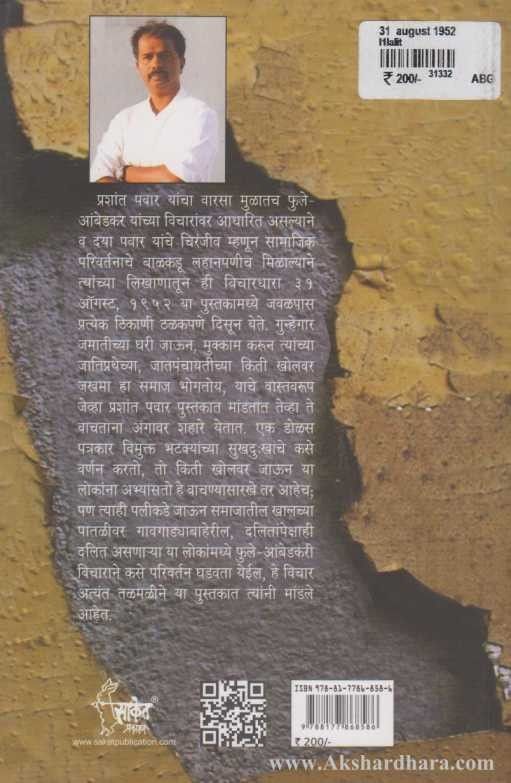 31 august 1952
lalit
₹ 200/- 31332 ABG
प्रशांत पवार यांचा वारसा मुळातच फुले-
आंबेडकर यांच्या विचारांवर आधारित असल्याने
व दया पवार यांचे चिरंजीव म्हणून सामाजिक
परिवर्तनाचे बाळकडू लहानपणीच मिळाल्याने
त्यांच्या लिखाणातून ही विचारधारा ३१
ऑगस्ट, १९५२ या पुस्तकामध्ये जवळपास
प्रत्येक ठिकाणी ठळकपणे दिसून येते. गुन्हेगार
जमातीच्या घरी जाऊन, मुक्काम करून त्यांच्या
जातिप्रथेच्या, जातपंचायतीच्या किती खोलवर
जखमा हा समाज भोगतोय, याचे वास्तवरूप
जेव्हा प्रशांत पवार पुस्तकात मांडतात तेव्हा ते
वाचताना अंगावर शहारे येतात. एक डोळस
पत्रकार विमुक्त भटक्यांच्या सुखदुःखांचे कसे
वर्णन करतो, तो किती खोलवर जाऊन या
लोकांना अभ्यासतो हे वाचण्यासारखे तर आहेच;
पण त्याही पलीकडे जाऊन समाजातील खालच्या
पातळीवर गावगाड्याबाहेरील, दलितांपेक्षाही
दलित असणाऱ्या या लोकांमध्ये फुले-आंबेडकरी
विचाराने कसे परिवर्तन घडवता येईल, हे विचार
अत्यंत तळमळीने या पुस्तकात त्यांनी मांडले
आहेत.
साकेत®
प्रकाशन
www.saketpublication.com
ISBN 978-81-7786-858-6
9 788177 868586
₹ 200/-
www.Akshardhara.com